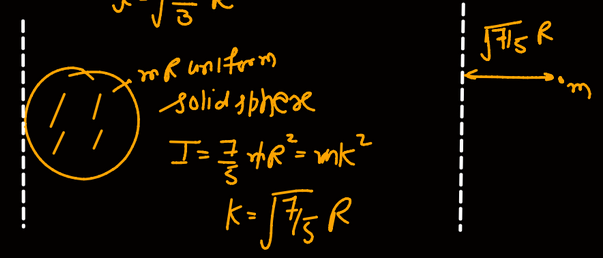 K = √5/3 R
m R uniform
solid sphere
I = 7/5 mR² = mK²
K = √7/5 R
√7/5 R
m